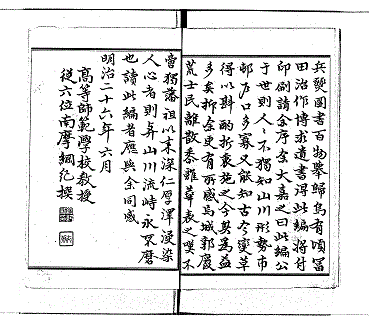 兵燹圖書百物擧歸烏有頃冨
田治作博求遺書得此編將付
印刷請余序余大嘉之曰此編公
于世則人〻不獨知山川形勢市
邨戸口多寡又能知古今變革
得以斟酌折衷施之今其爲益
多矣抑余更有所感焉城郭廢
荒士民離散黍離華表之嘆不
啻獨藩祖以来深仁厚澤浸染
人心者則與山川流峙永不磨
也讀此編者應與余同感
明治二十六年六月
高等師範學校教授
從六位南摩綱紀撰